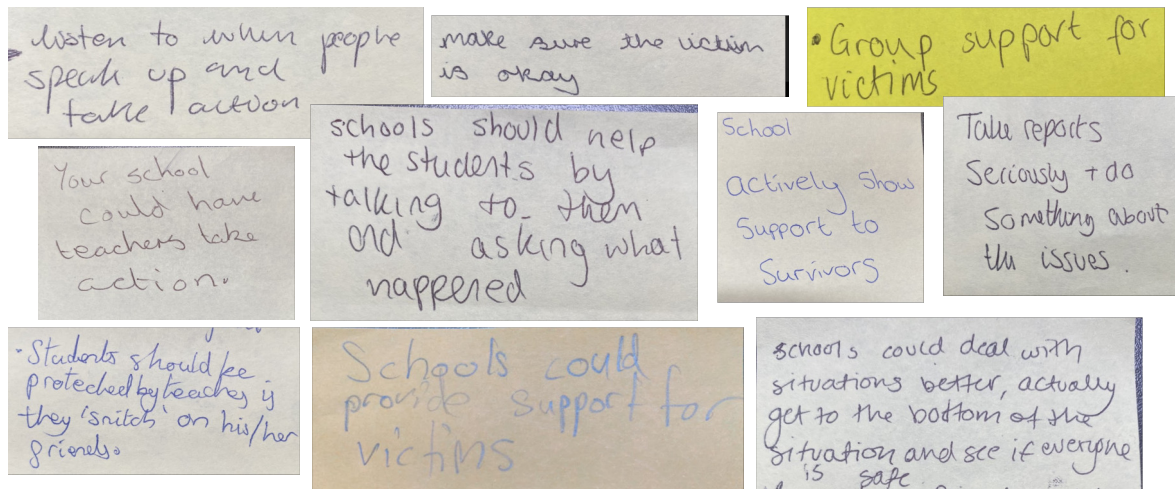 listen to when people
speak up and
take action
make sure the victim
is okay
• Group support for
victims
Your school
could have
teachers take
action.
schools should help
the students by
talking to them
and asking what
happened
School
actively show
Support to
Survivors
Take reports
Seriously + do
Something about
the issues.
• Students should be
protected by teachers if
they 'snitch' on his/her
friends.
Schools could
provide support for
victims
schools could deal with
situations better, actually
get to the bottom of the
situation and see if everyone
is safe